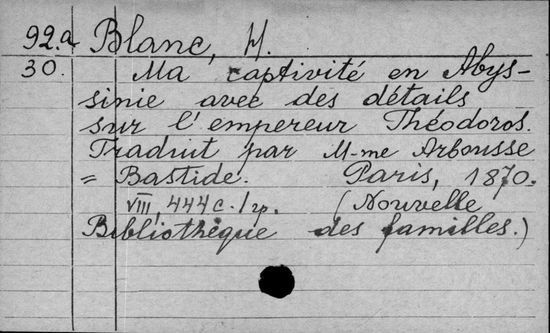 92.a Blanc, H.
30. Ma captivité en Abys-
sinie avec des détails
sur l'empereur Théodoros.
Traduit par M-me Arbousse
= Bastide. Paris, 1870.
VIII, 444 c. 1 гр. (Nouvelle
Bibliothèque des familles.)